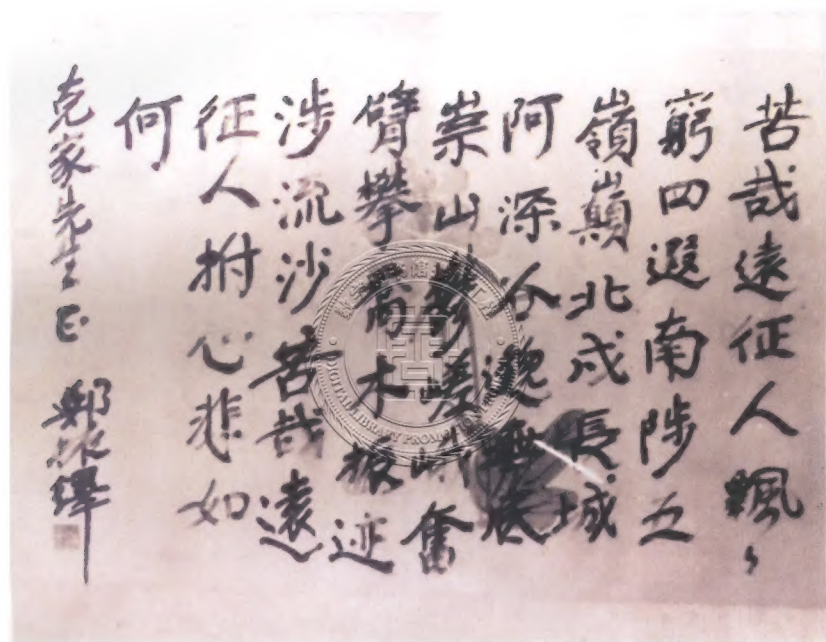 苦哉遠征人飄〻
窮四遐南陟五
嶺巔北戍長城
阿深谷邈無底
崇山鬱嵯峨奮
臂攀喬木振迹
涉流沙苦哉遠
征人拊心悲如
何
克家先生正 鄭振鐸
DIGITAL LIBRARY PROMOTION